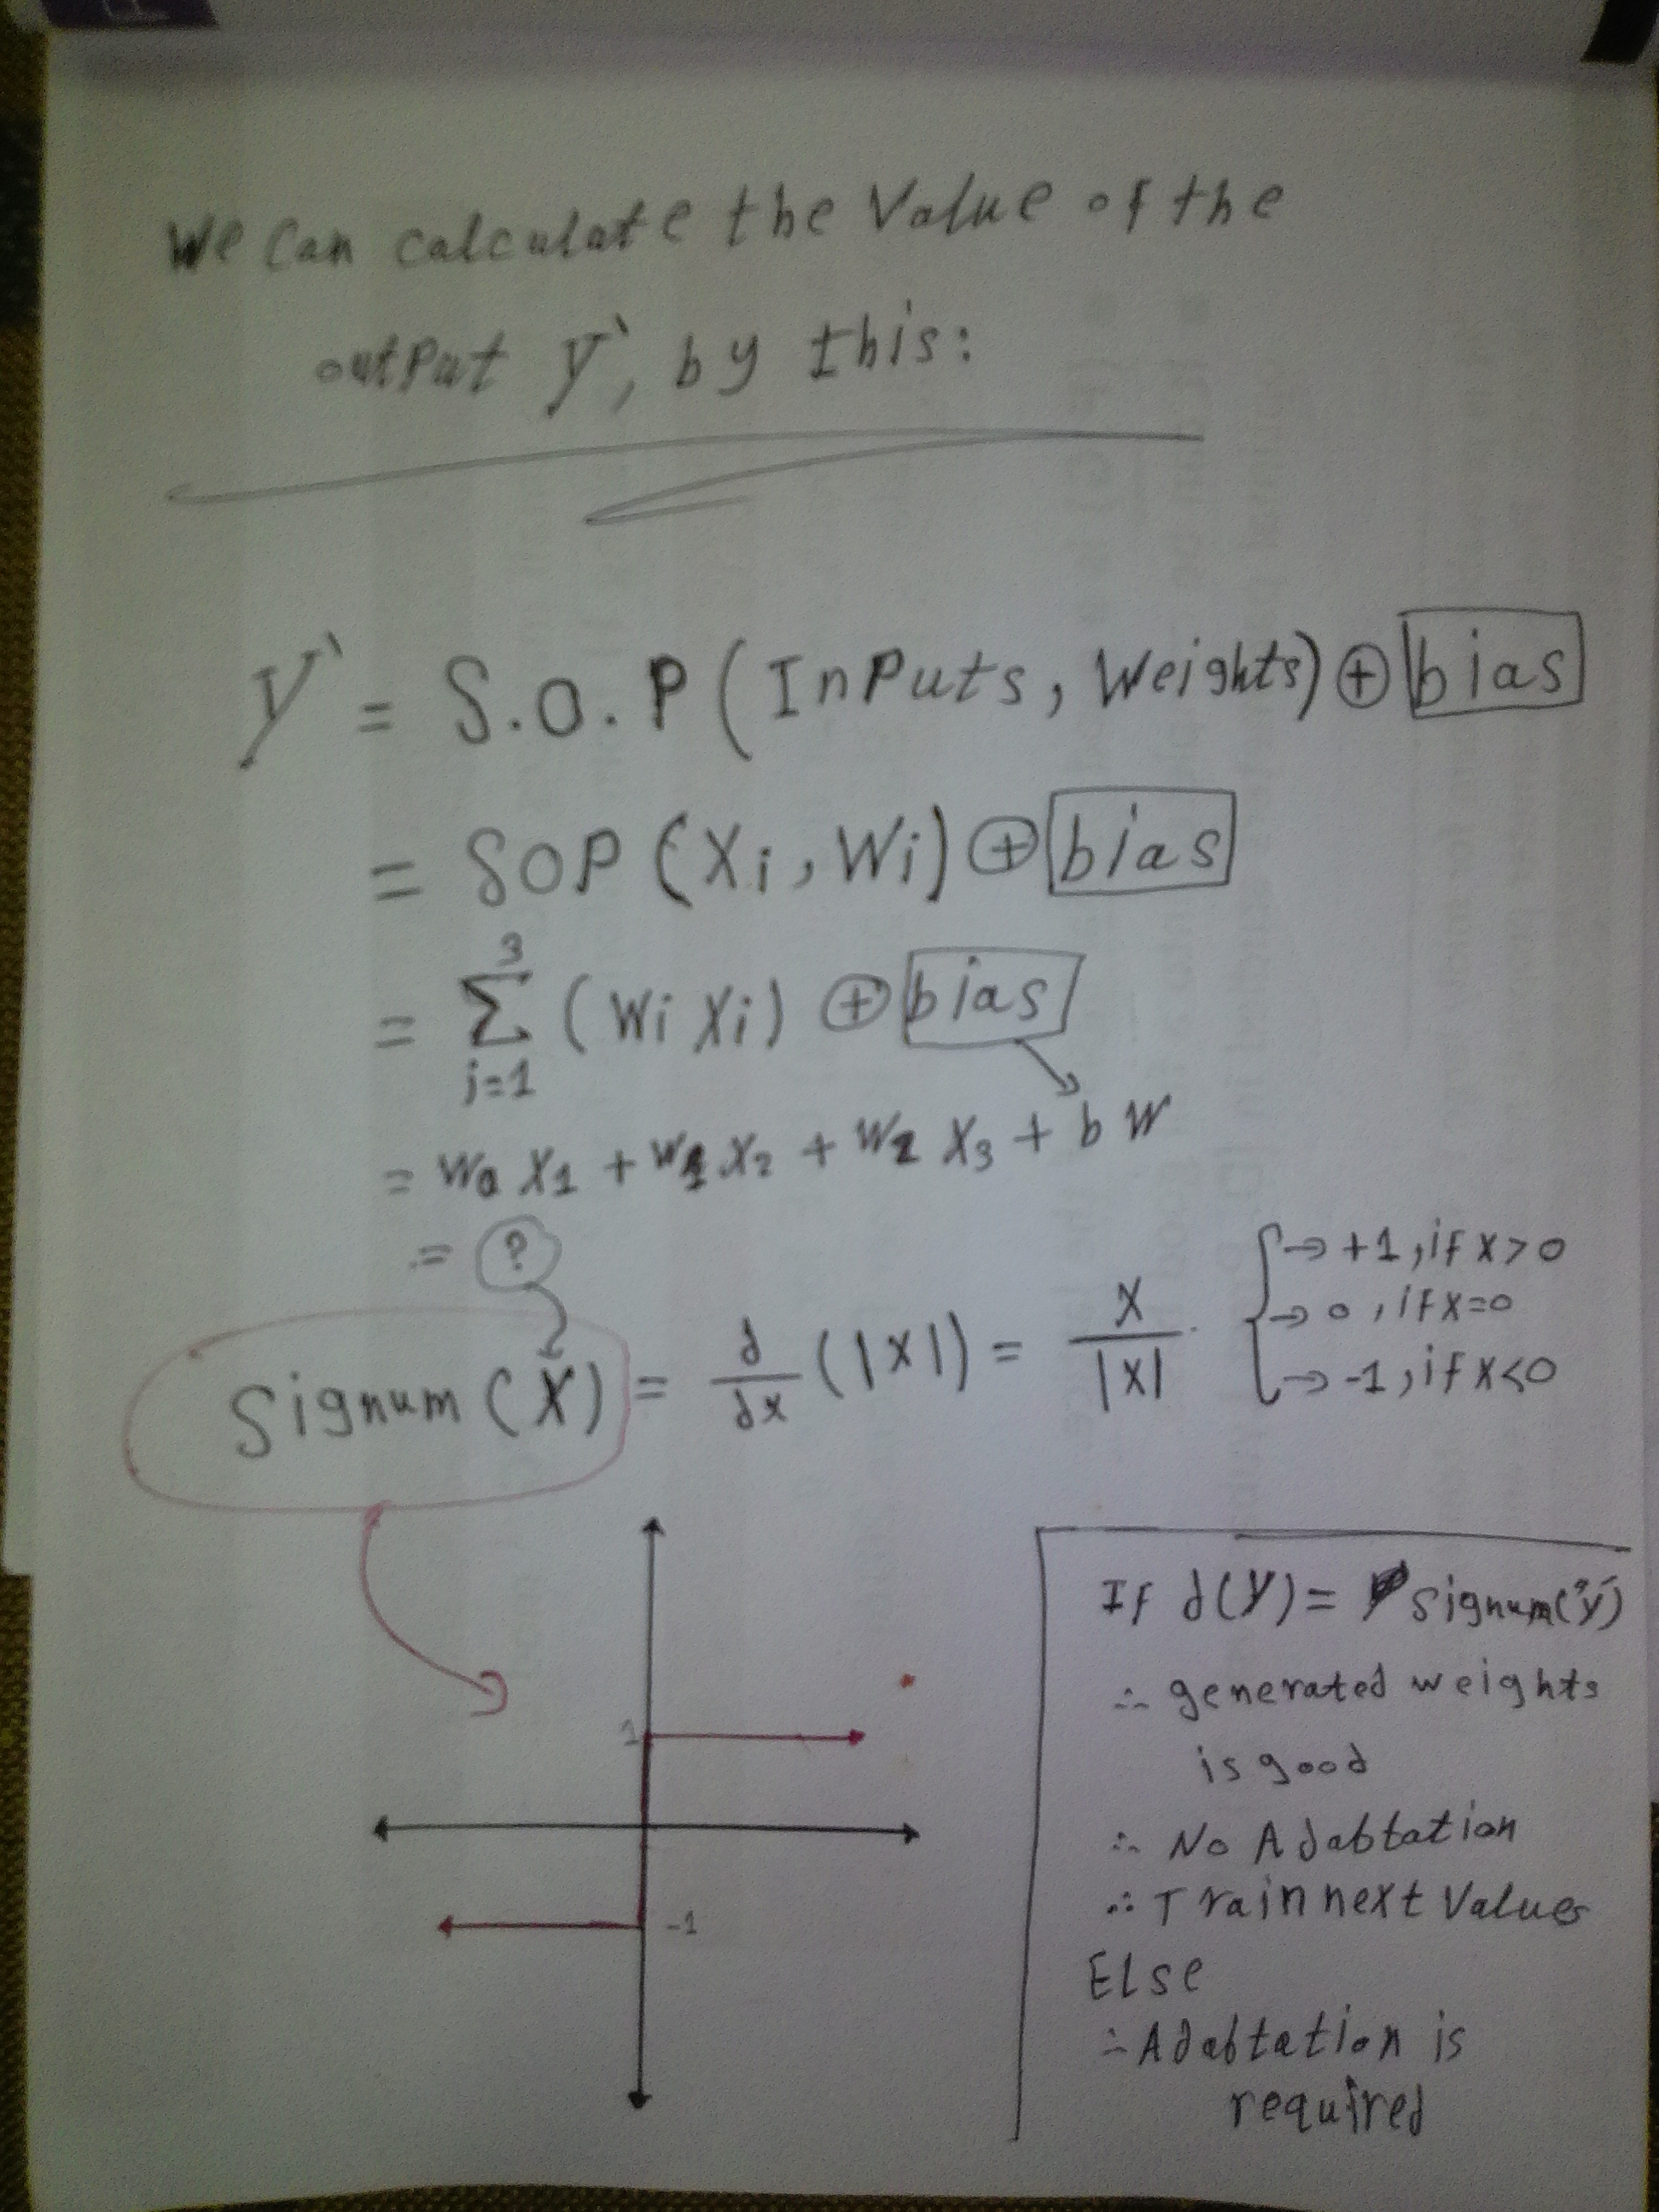 We Can calculate the Value of the
output Y`, by this:
Y` = S.O.P (InPuts, Weights) ⊕ bias
= SOP (Xi, Wi) ⊕ bias
3
= Σ (Wi Xi) ⊕ bias
i=1
= W0 X1 + W1 X2 + W2 X3 + b W
= ?
Signum (X) = d/dx (|X|) = X/|X| { → +1, if X > 0
→ 0, if X=0
→ -1, if X<0
1
-1
If d(Y) = Signum(Y`)
∴ generated weights
is good
∴ No Adabtation
∴ Train next Values
Else
∴ Adabtation is
required